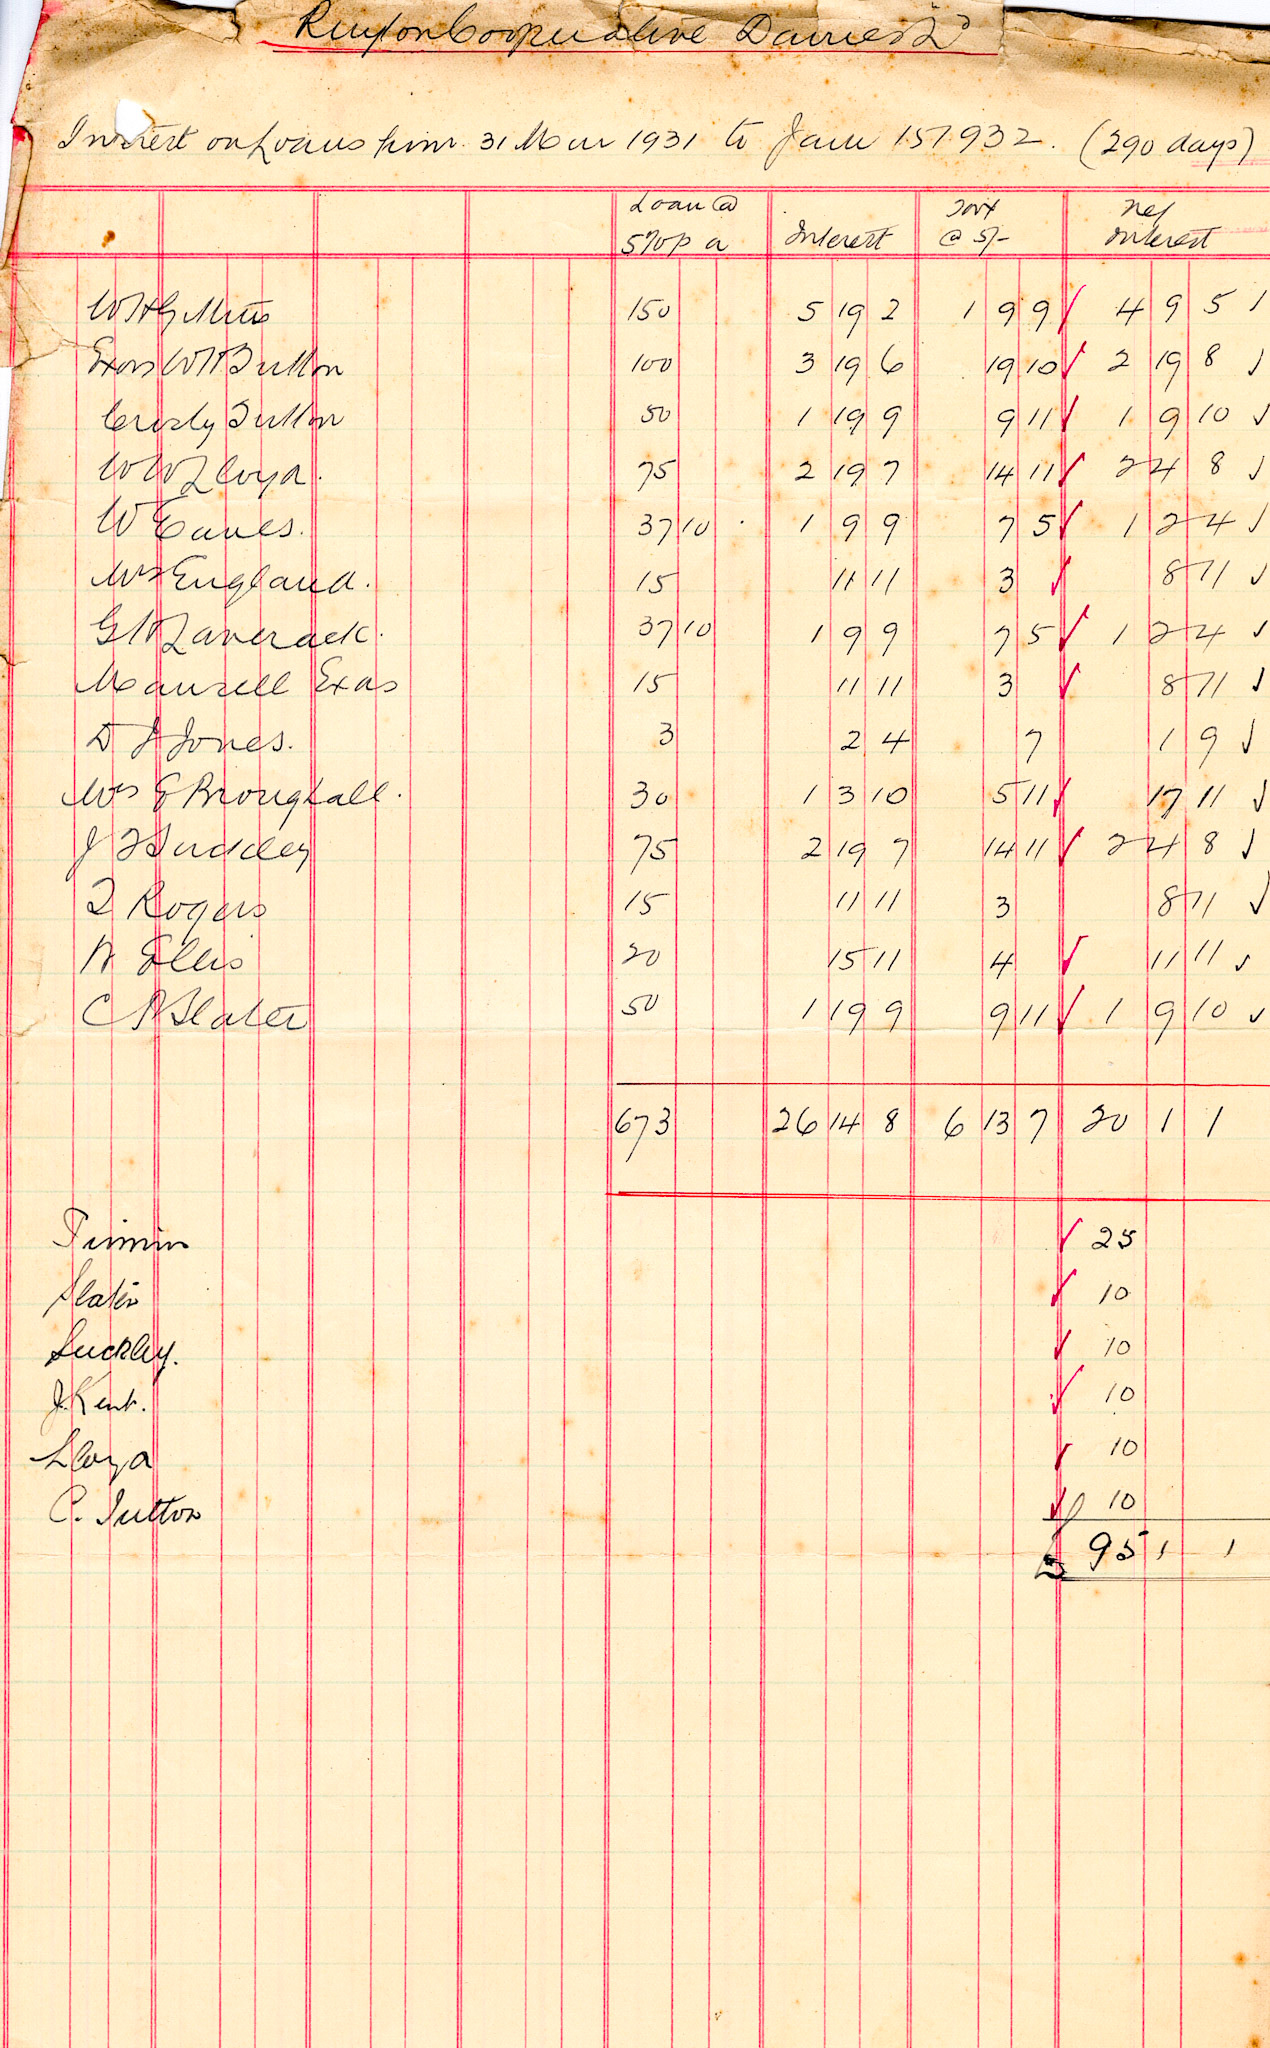 Ruyton Cooperative Dairies Ld
Interest on Loans from 31 Mar 1931 to Jan 15 1932. (290 days)
Loan @ 5% p a Interest Tax @ 5/- Net Interest
W H G 150 5 19 2 1 9 9 ✓ 4 9 5 ✓
Exors W H Sutton 100 3 19 6 19 10 ✓ 2 19 8 ✓
Sutton 50 1 19 9 9 11 ✓ 1 9 10 ✓
W W Lloyd. 75 2 19 7 14 11 ✓ 2 4 8 ✓
W Eaves. 37 10 1 9 9 7 5 ✓ 1 2 4 ✓
Mrs England. 15 11 11 3 ✓ 8 11 ✓
G W Laverack. 37 10 1 9 9 7 5 ✓ 1 2 4 ✓
Mansell Exors 15 11 11 3 ✓ 8 11 ✓
D J Jones. 3 2 4 7 1 9 ✓
Mrs E Broughall. 30 1 3 10 5 11 ✓ 17 11 ✓
J T Suckley 75 2 19 7 14 11 ✓ 2 4 8 ✓
T Rogers 15 11 11 3 8 11 ✓
W Ellis 20 15 11 4 ✓ 11 11 ✓
C A Slater 50 1 19 9 9 11 ✓ 1 9 10 ✓
673 26 14 8 6 13 7 20 1 1
Timmis ✓ 25
Slater ✓ 10
Suckley. ✓ 10
J. Kent. ✓ 10
Lloyd ✓ 10
C. Sutton ✓ 10
£ 95 1 1